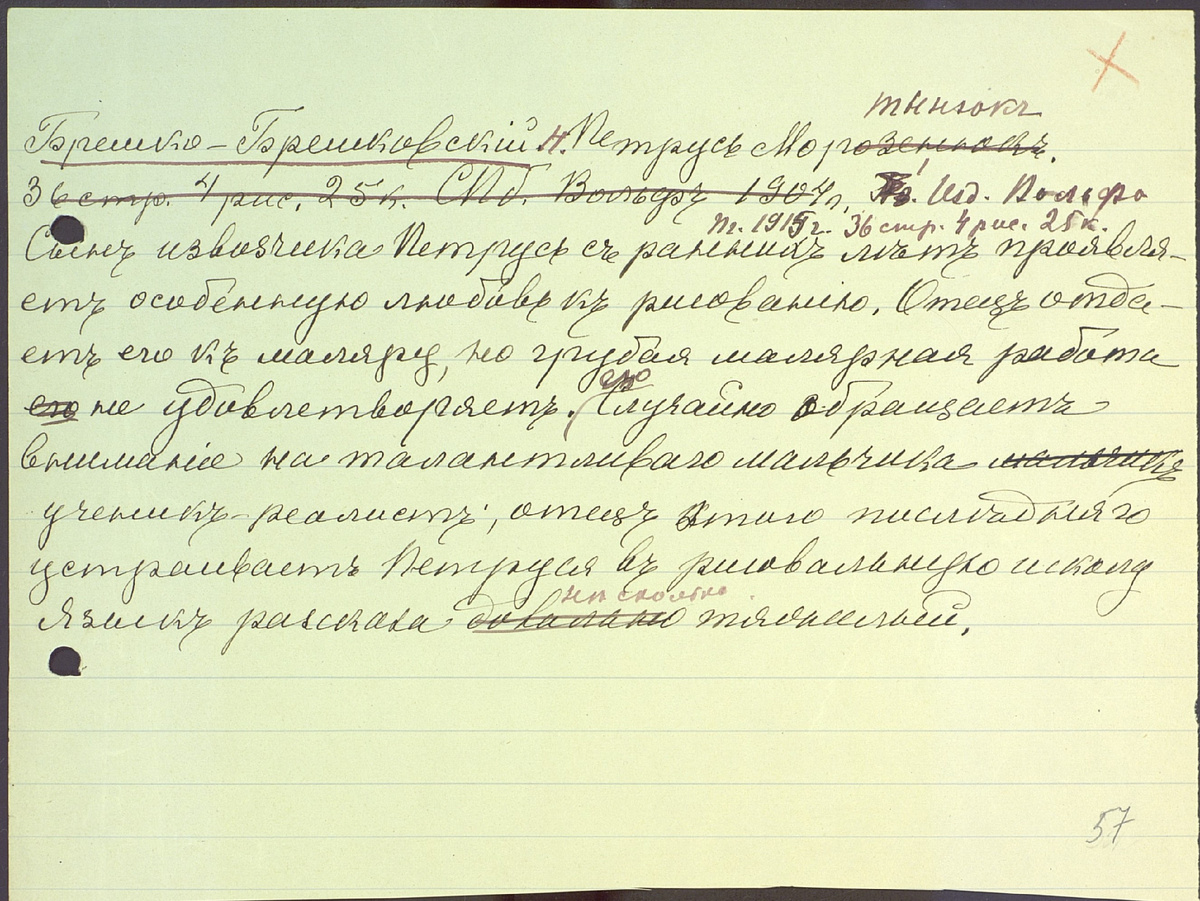 тынокъ
Брешко-Брешковскій Н. Петрусь Морозенокъ.
36 стр. 4 рис. 25 к. СПб. Вольфъ 1904 г. Изд. Вольфа
Пг. 1915 г. 36 стр. 4 рис. 25 к.
Сынъ извозчика Петрусь съ раннихъ лѣтъ проявля-
етъ особенную любовь къ рисованію. Отецъ отда-
етъ его къ маляру, но грубая малярная работа
его
его не удовлетворяетъ. Случайно обращаетъ
вниманіе на талантливаго мальчика мальчикъ
ученикъ-реалистъ, отецъ этого послѣдняго
устраиваетъ Петруся въ рисовальную школу
нѣсколько
Языкъ разсказа довольно тяжелый.
57